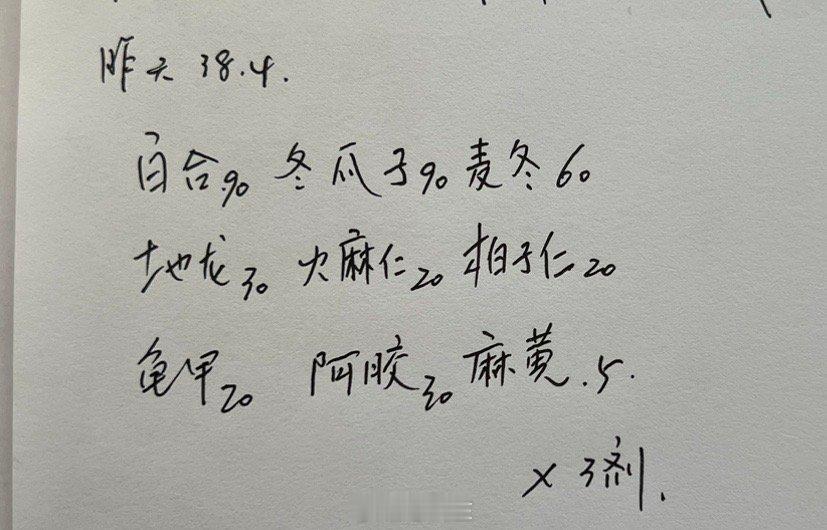 昨天 38.4.
百合90 冬瓜子90 麦冬60
地龙30 火麻仁20 柏子仁20
龟甲20 阿胶30 麻黄.5.
×3剂.